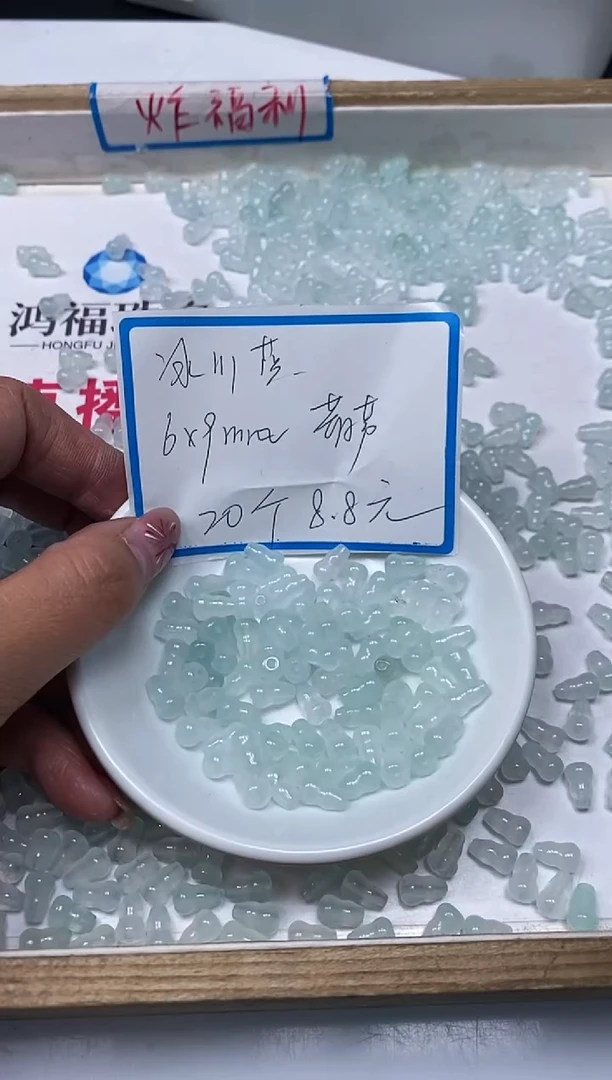 炸福利
鸿福珠
HONGFU J
直播
冰川
6x9mm 葫芦
20个 8.8元